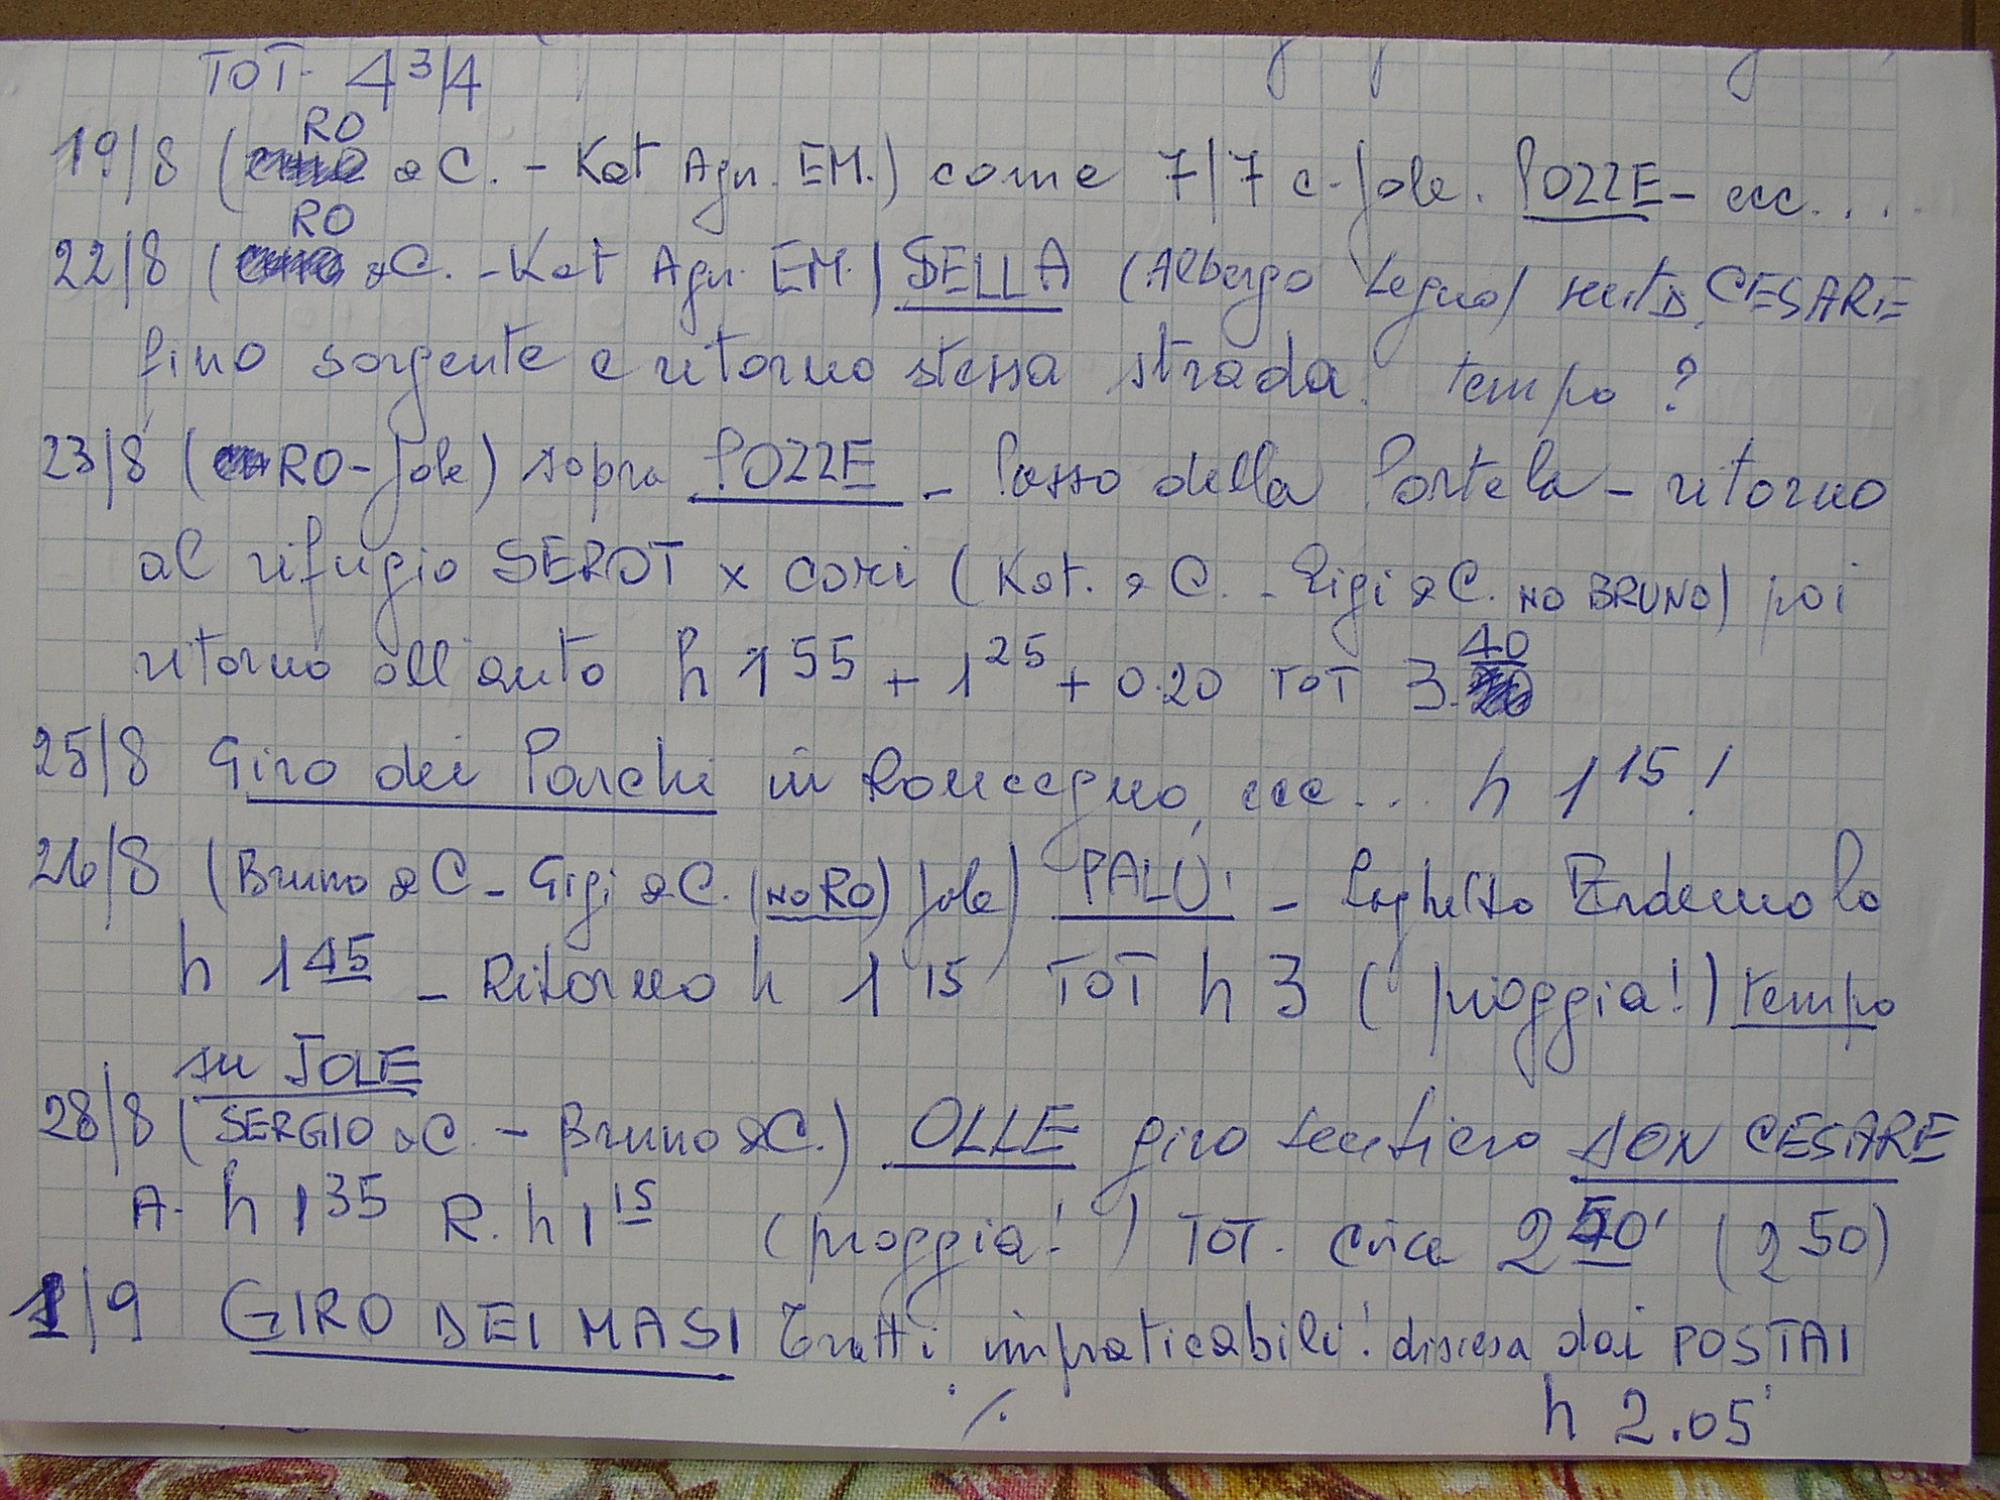 TOT- 4 3/4
19/8 (RO & C. - Kat Agn. EM.) come 7/7 c. Jole. POZZE - ecc....
22/8 (RO & C. - Kat Agn. EM.) SELLA (Albergo Legno) sent. D. CESARE
fino sorgente e ritorno stessa strada. tempo ?
23/8 (RO - Jole) sopra POZZE - Passo della Portela - ritorno
al rifugio SEROT x cori (Kat. & C. - Gigi & C. NO BRUNO) poi
ritorno all'auto h 1 55 + 1 25 + 0.20 TOT 3.40
25/8 Giro dei Parchi in Roncegno, ecc... h 1 15 !
26/8 (Bruno & C - Gigi & C. (NO RO) Jole) PALÙ - Laghetto Erdemolo
h 1 45 - Ritorno h 1 15 TOT h 3 (pioggia!) tempo
su JOLE
28/8 (SERGIO & C. - Bruno & C.) OLLE giro sentiero DON CESARE
A- h 1 35 R. h 1 15 (pioggia!) TOT. circa 2 50' (2 50)
1/9 GIRO DEI MASI Tratti impraticabili! discesa dai POSTAI
./. h 2.05'